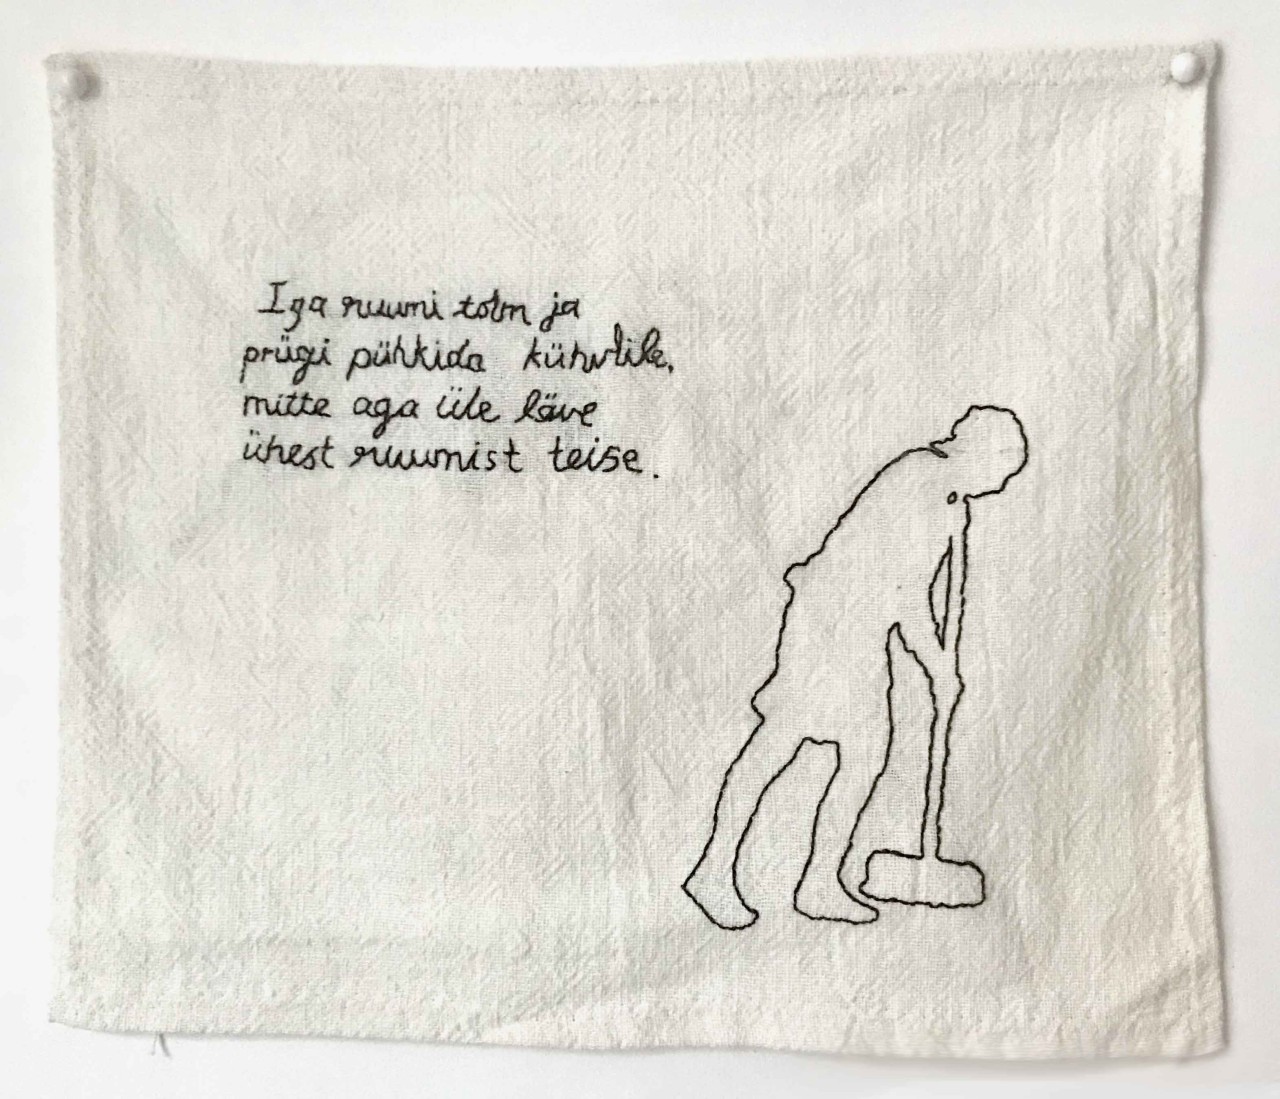 Iga ruumi tolm ja
prügi pühkida kühvlile,
mitte aga üle läve
ühest ruumist teise.